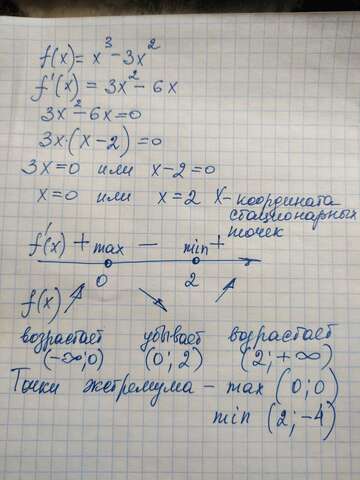 f(x) = x³ - 3x²
f'(x) = 3x² - 6x
3x² - 6x = 0
3x·(x - 2) = 0
3x = 0 или x - 2 = 0
x = 0 или x = 2 X - координата
стационарных
точек
f'(x) + max — min +
0 2
f(x) ↗ ↘ ↗
возрастает убывает возрастает
(-∞; 0) (0; 2) (2; +∞)
Точки экстремума - max (0; 0)
min (2; -4)